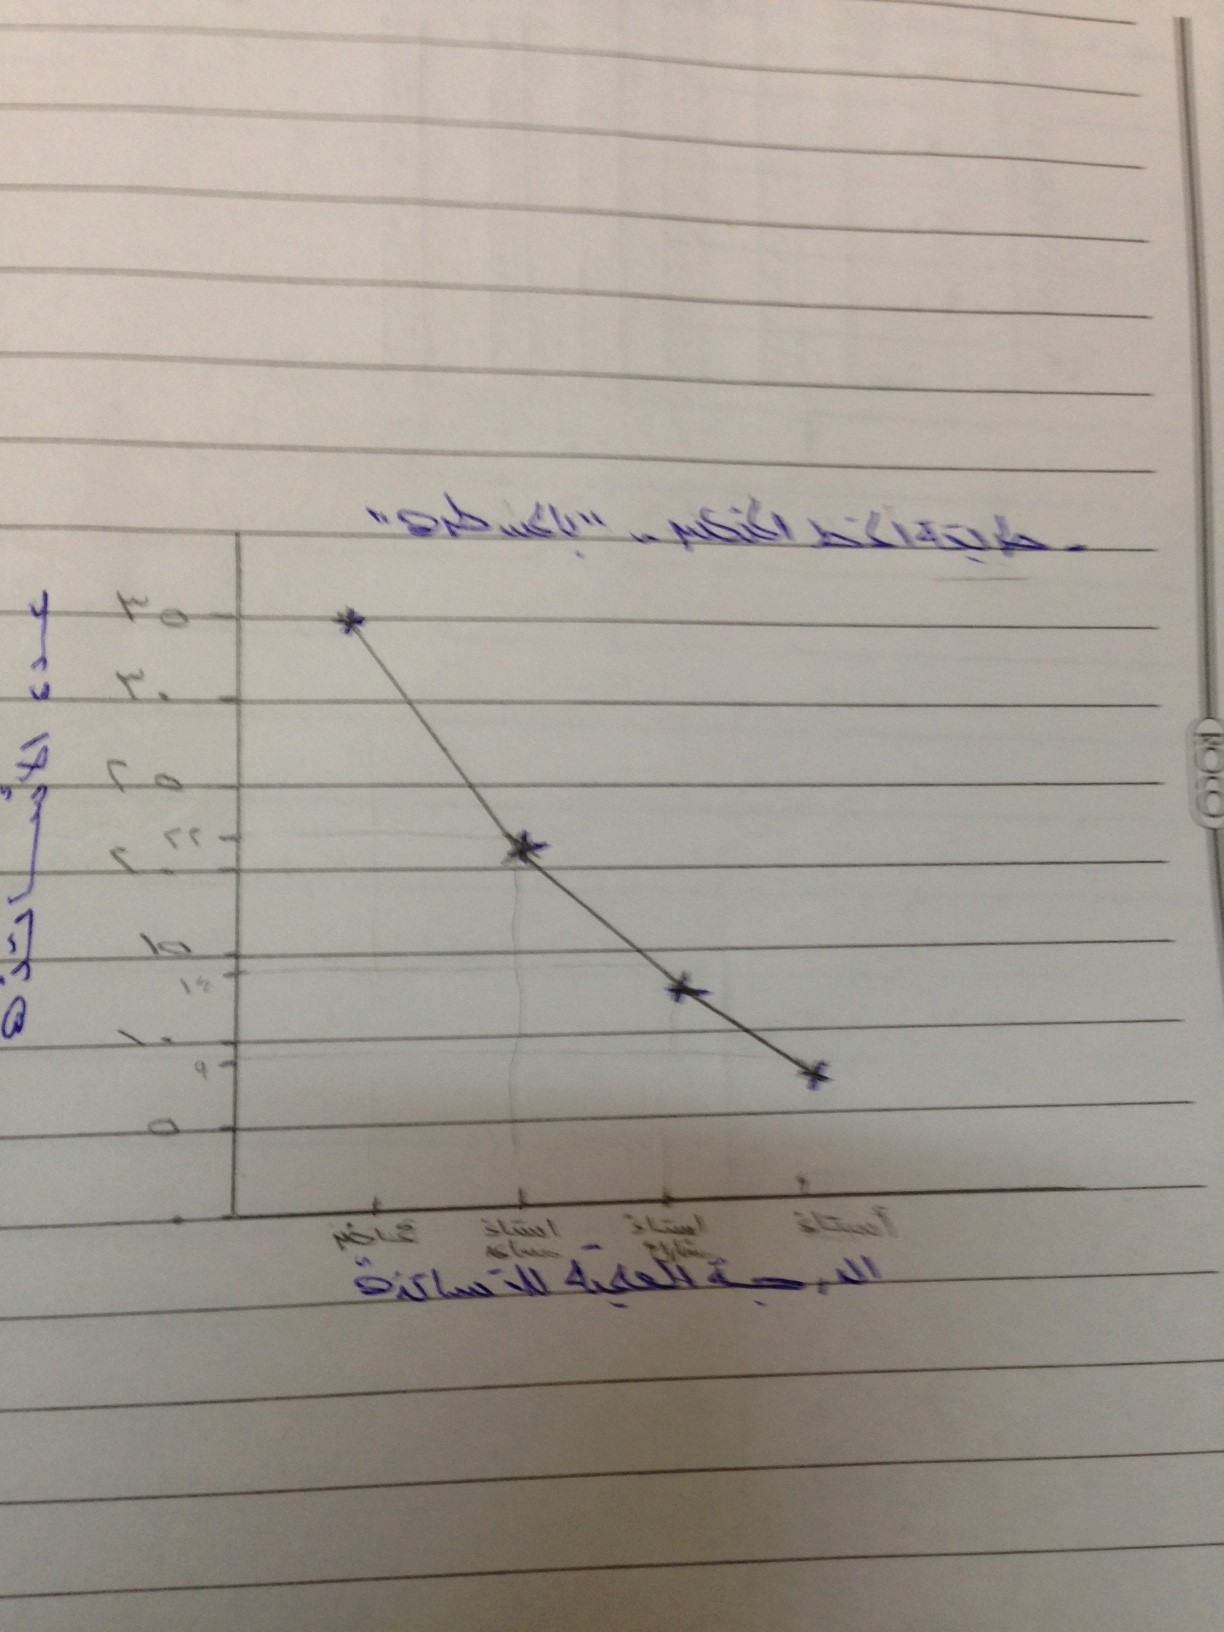 - طريقة الخط المنكسر .. "بالمسطرة"
عدد الأساتذة
٣٥
٣٠
٢٥
٢٢
٢٠
١٥
١٣
١٠
٩
٥
٠
محاضر استاذ مساعد استاذ مشارك أستاذ
الدرجة العلمية للأساتذة
ROCO